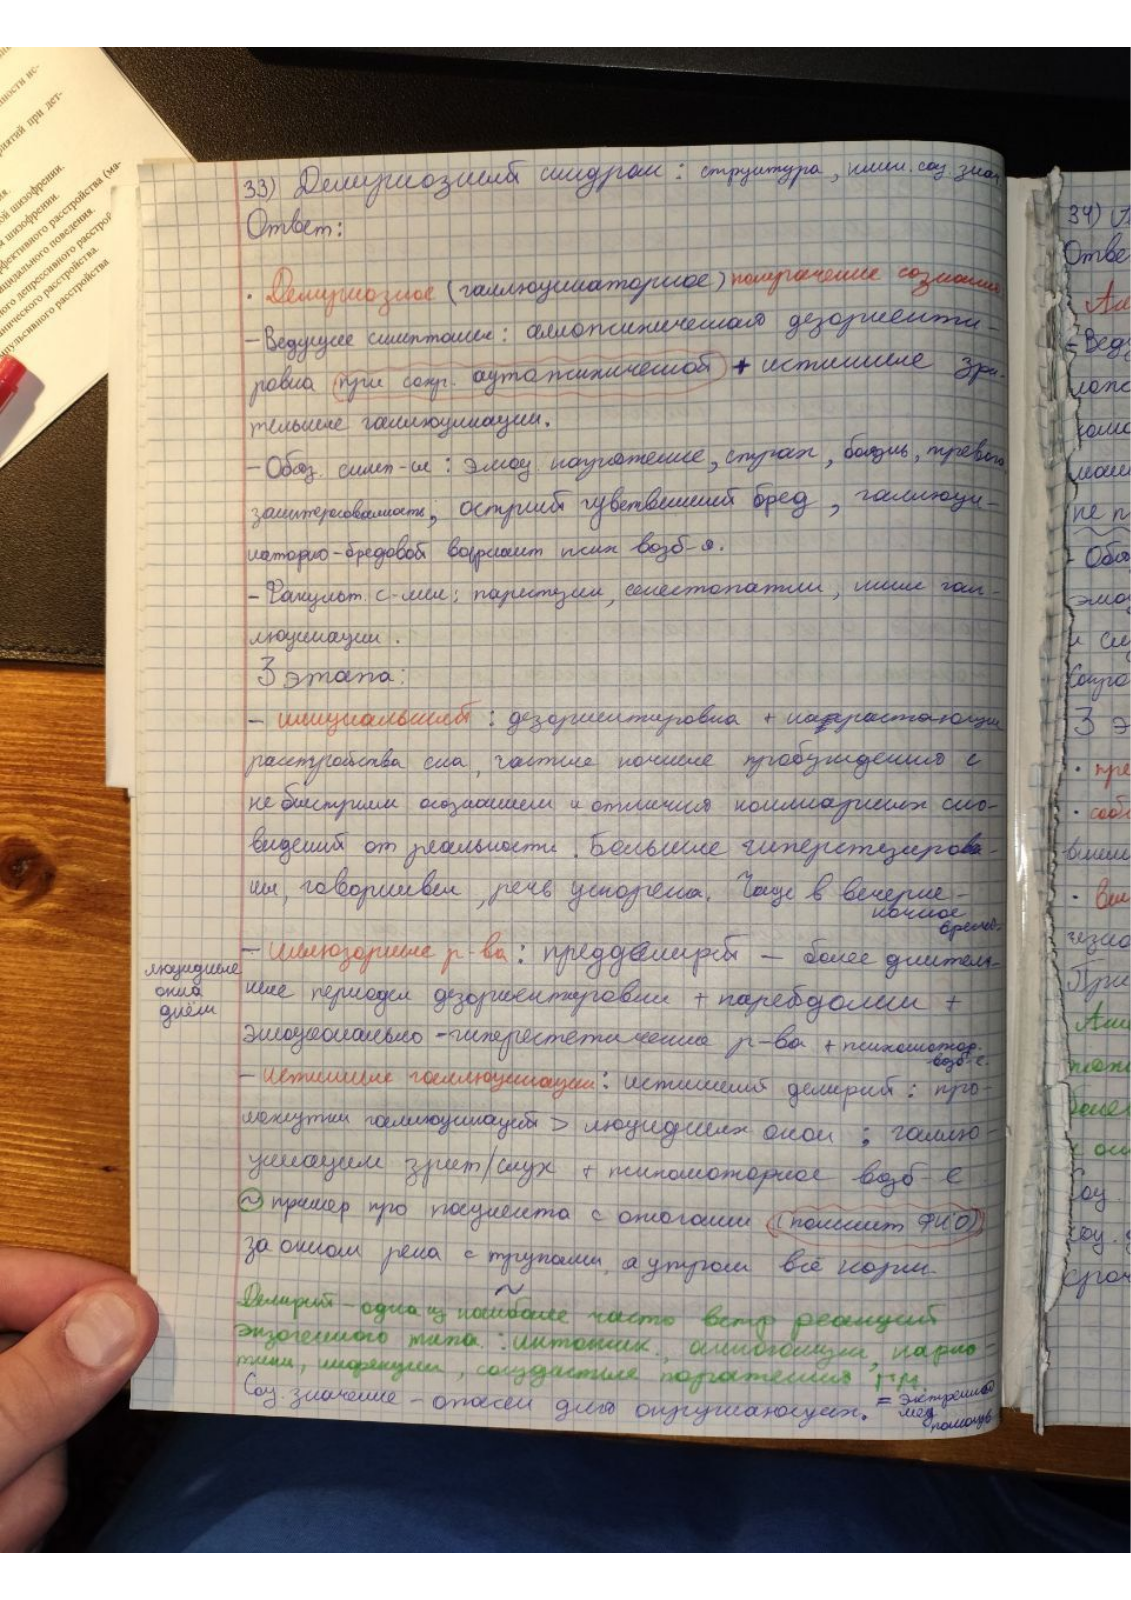 33) Делириозный синдром: структура, клин. соц. знач
Ответ:
· Делириозное (галлюцинаторное) помрачение сознания
- Ведущие симптомы: аллопсихическая дезориенти-
ровка (при сохр. аутопсихической) + истинные зри-
тельные галлюцинации.
- Обяз. симп-ы: эмоц напряжение, страх, боязнь, тревога
заинтересованность, острый чувственный бред, галлюци-
наторно-бредовой вариант псих возб-я.
- Факульт. с-мы: парестезии, сенестопатии, иные гал-
люцинации.
3 этапа:
- инициальный: дезориентировка + нарастающие
расстройства сна, частые ночные пробуждения с
не быстрым осознанием и отличия кошмарных сно-
видений от реальности. Больные гиперстезирова-
ны, говорливы, речь ускорена. Чаще в вечерне-
ночное
время.
- иллюзорные р-ва: предделирий — более длитель-
ные периоды дезориентировки + парейдолии +
эмоционально-гиперестетические р-ва + психомотор.
возб-е.
люцидные
окна
днём
- истинные галлюцинации: истинный делирий: про-
межутки галлюцинаций > люцидных окон; галлю-
цинации зрит/слух + психомоторное возб-е
~ пример про пациента с ожогами (помнит ФИО)
за окном река с трупами, а утром всё норм.
~
Делирий - одна из наиболее часто встр реакций
экзогенного типа: интоксик., алкоголизм, нарко-
тики, инфекции, сосудистые поражения ГМ.
Соц. значение - опасен для окружающих. = экстренная
мед
помощь
34)
Отве
- Веду
лопс
не п
- Обяз
эмоц
3 э
· пре
· собс
При
Соц.
сроч
ности ис-
риятий при дет-
ой шизофрении.
шизофрении.
фективного расстройства (ма-
ицидального поведения.
ного депрессивного расстрой
анического расстройства.
пульсивного расстройства